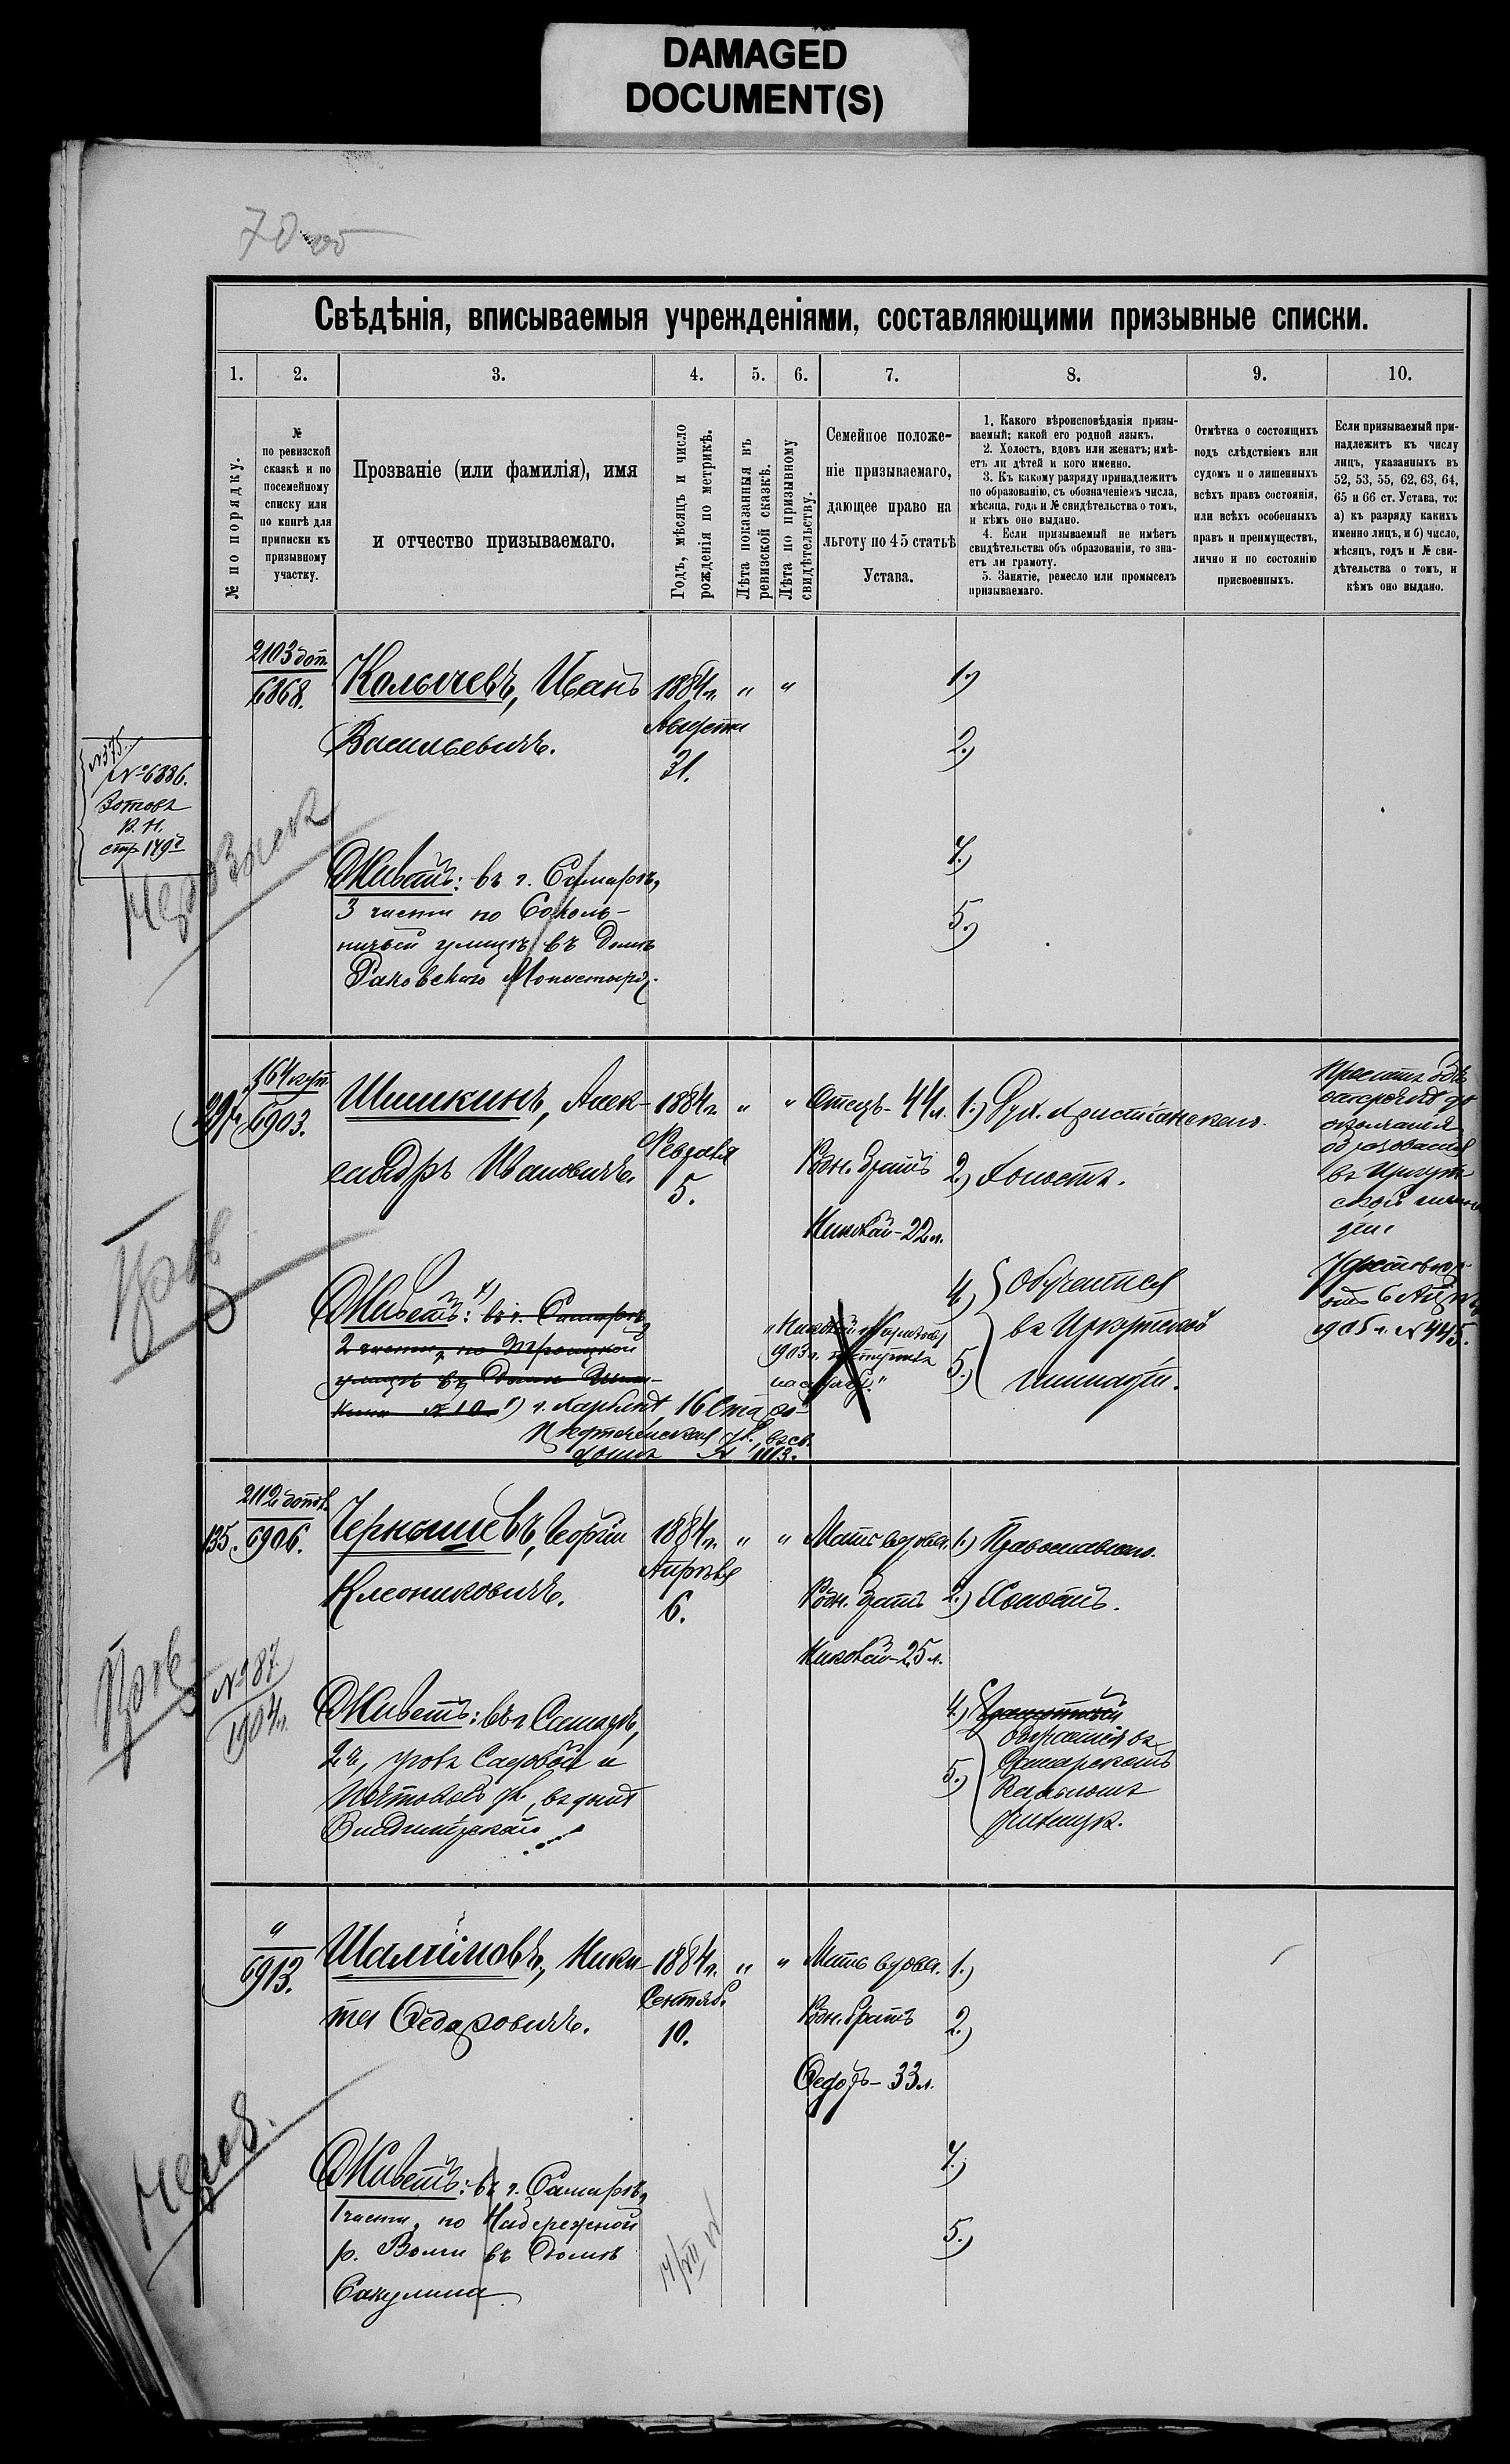 DAMAGED
DOCUMENT(S)
70 об
Свѣдѣнія, вписываемыя учрежденіями, составляющими призывные списки.
1. 2. 3. 4. 5. 6. 7. 8. 9. 10.
№ по порядку.
№
по ревизской
сказкѣ и по
посемейному
списку или
по книгѣ для
приписки къ
призывному
участку.
Прозваніе (или фамилія), имя
и отчество призываемаго.
Годъ, мѣсяцъ и число
рожденія по метрикѣ.
Лѣта показанныя въ
ревизской сказкѣ.
Лѣта по призывному
свидѣтельству.
Семейное положе-
ніе призываемаго,
дающее право на
льготу по 45 статьѣ
Устава.
1. Какого вѣроисповѣданія призы-
ваемый; какой его родной языкъ.
2. Холостъ, вдовъ или женатъ; имѣ-
етъ ли дѣтей и кого именно.
3. Къ какому разряду принадлежитъ
по образованію, съ обозначеніемъ числа,
мѣсяца, года и № свидѣтельства о томъ,
и кѣмъ оно выдано.
4. Если призываемый не имѣетъ
свидѣтельства объ образованіи, то зна-
етъ ли грамоту.
5. Занятіе, ремесло или промыселъ
призываемаго.
Отмѣтка о состоящихъ
подъ слѣдствіемъ или
судомъ и о лишенныхъ
всѣхъ правъ состоянія,
или всѣхъ особенныхъ
правъ и преимуществъ,
лично и по состоянію
присвоенныхъ.
Если призываемый при-
надлежитъ къ числу
лицъ, указанныхъ въ
52, 53, 55, 62, 63, 64,
65 и 66 ст. Устава, то:
а) къ разряду какихъ
именно лицъ, и б) число,
мѣсяцъ, годъ и № сви-
дѣтельства о томъ, и
кѣмъ оно выдано.
2103 доп.
6868.
Колычевъ, Иванъ
Васильевичъ.
1884 г. " "
Августа
31.
1.)
2.)
4.)
5.)
№375.
№6886.
Зотовъ
В. Н.
стр 149
Живетъ: въ г. Самарѣ,
3 части по Соколь-
ничьей улицѣ въ домѣ
Раковскаго Монастыря.
164 куп.
6903.
Шишкинъ, Алек-
сандръ Ивановичъ.
1884 г. " "
Февраля
5.
Отецъ - 44 л.
Родн. братъ
Николай - 22 л.
1.)
2.) Холостъ.
4.) Обучается
въ Иркутской
5.) гимназіи.
Живетъ: въ г. Самарѣ,
2 части, по Троицкой
улицѣ въ домѣ Шиш-
кина № 10
г. Харбинъ,
домъ № 1113.
образованія
въ Иркут-
ской гимна-
зіи
№ 445.
2112 допол.
135. 6906.
Чернышевъ, Георгій
Клеониковичъ.
1884 г. " "
Апрѣля
6.
Мать вдова.
Родн. братъ
Николай - 25 л.
1.) Православнаго.
2.) Холостъ.
4.) Грамотный
обучается въ
5.) Самарскомъ
Реальномъ
училищѣ.
№ 87
1904 г.
Живетъ: въ г. Самарѣ,
2 ч., уголъ Садовой и
Почтовой ул., въ домѣ
"
6913.
Шалимовъ, Ники-
та Федоровичъ.
1884 г. " "
Сентяб.
10.
Мать вдова.
Родн. братъ
Федоръ - 33 л.
1.)
2.)
4.)
5.)
Живетъ: въ г. Самарѣ,
1 части, по Набережной
р. Волги въ домѣ
Сакулина